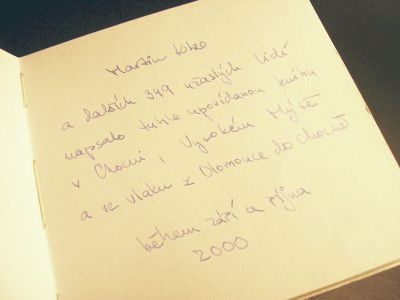 Martin
a dalších 349 úžasných lidí
napsalo tuhle upovídanou knihu
v Chocni i Vysokém Mýtě
a ve vlaku z Olomouce do Chocně
během září a října
2000